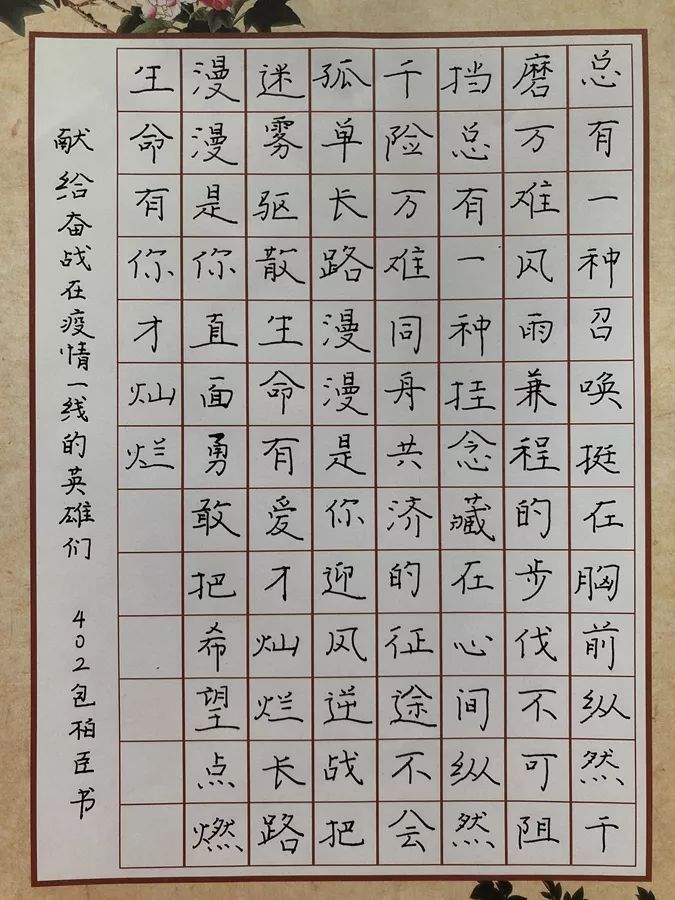 总有一种召唤挺在胸前纵然千
磨万难风雨兼程的步伐不可阻
挡总有一种挂念藏在心间纵然
千险万难同舟共济的征途不会
孤单长路漫漫是你迎风逆战把
迷雾驱散生命有爱才灿烂长路
漫漫是你直面勇敢把希望点燃
生命有你才灿烂
献给奋战在疫情一线的英雄们 402包柏臣书